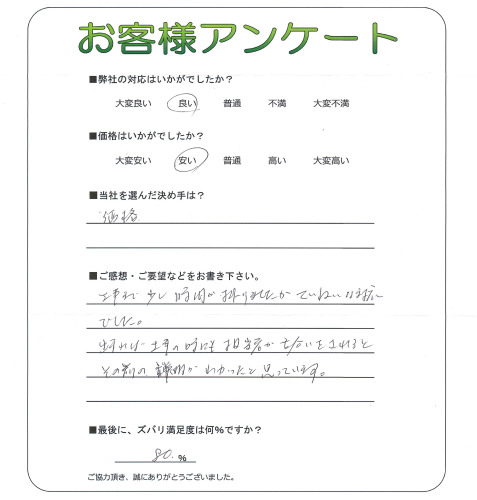 お客様アンケート
■弊社の対応はいかがでしたか？
大変良い 良い 普通 不満 大変不満
■価格はいかがでしたか？
大変安い 安い 普通 高い 大変高い
■当社を選んだ決め手は？
価格
■ご感想・ご要望などをお書き下さい。
工事まで少し時間が掛りましたがていねいな対応
でした。
出来れば工事の時にも担当者が立合いをされると
その別の説明がわかったと思っています。
■最後に、ズバリ満足度は何％ですか？
80.％
ご協力頂き、誠にありがとうございました。